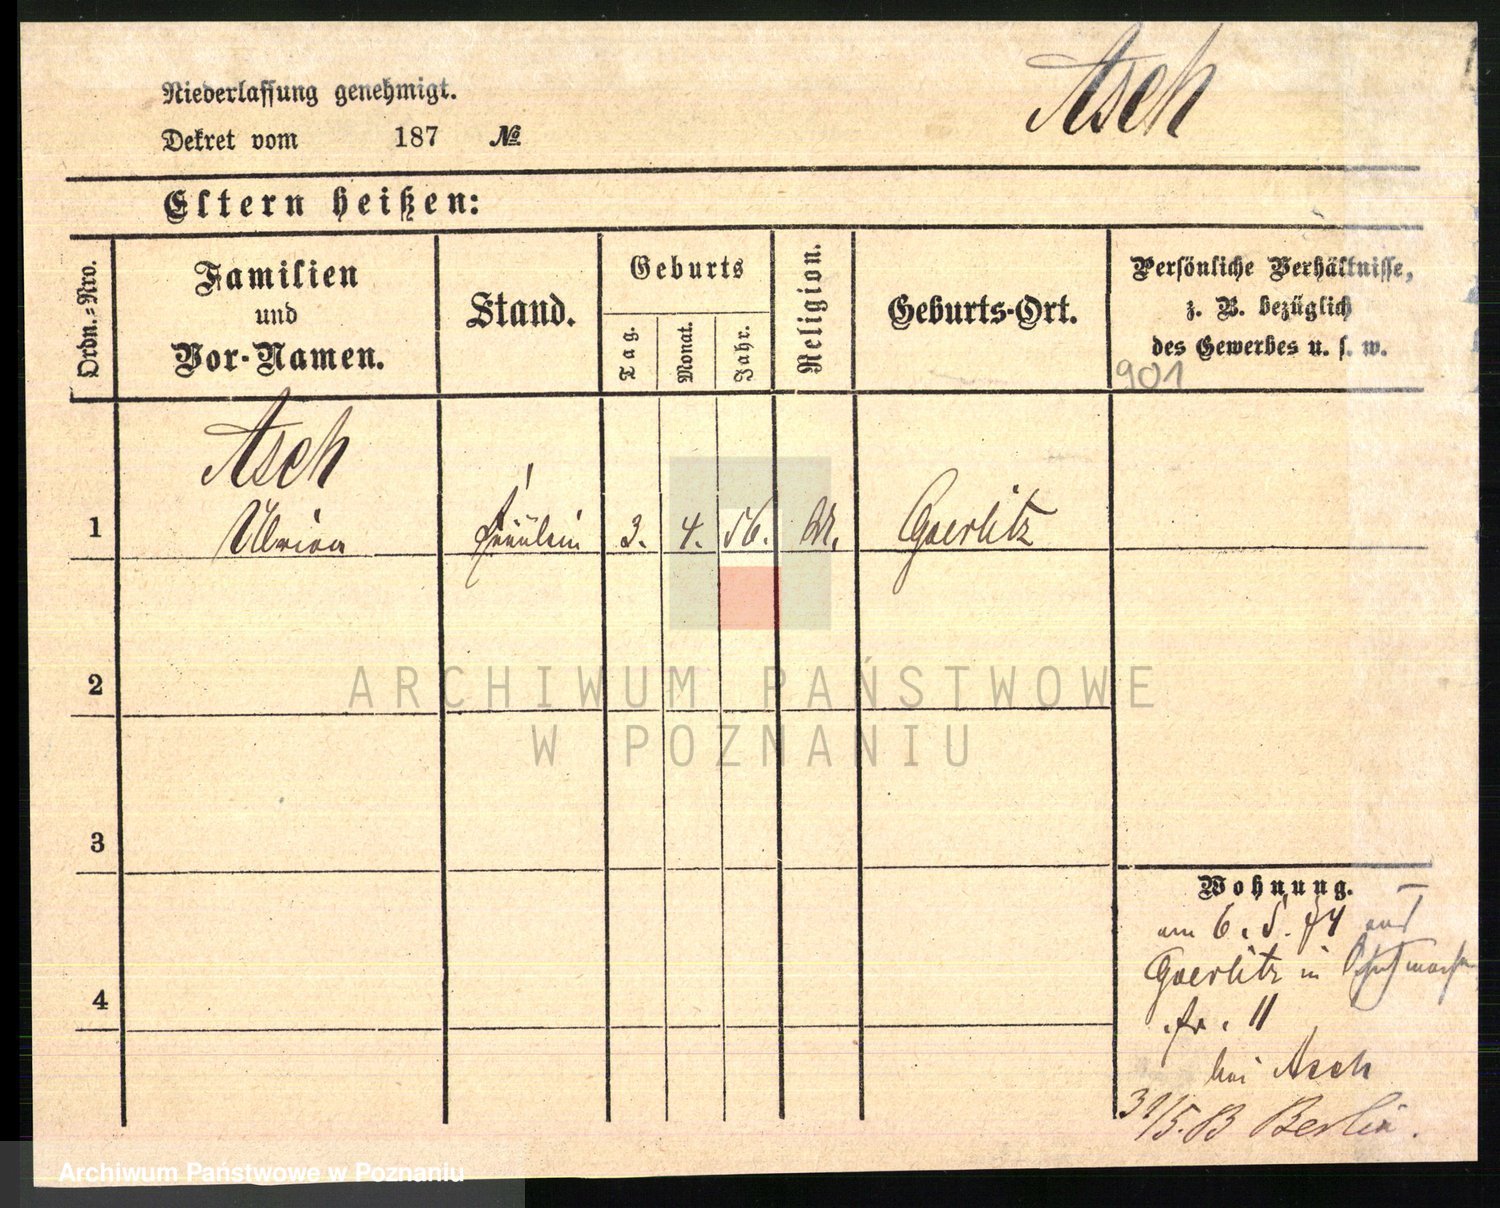 Asch
Niederlassung genehmigt.
Dekret vom 187 №
Eltern heißen:
Ordn.-Nro.
Familien
und
Vor-Namen.
Stand.
Geburts
Tag.
Monat.
Jahr.
Religion.
Geburts-Ort.
Persönliche Verhältnisse,
z. B. bezüglich
des Gewerbes u. s. w.
901
Asch
1 Fräulein 3. 4. 56. M. Goerlitz
2
3
4
Wohnung.
am 6. 5. 74 aus
Goerlitz in
11
bei Asch
Berlin.
ARCHIWUM PAŃSTWOWE
W POZNANIU
Archiwum Państwowe w Poznaniu